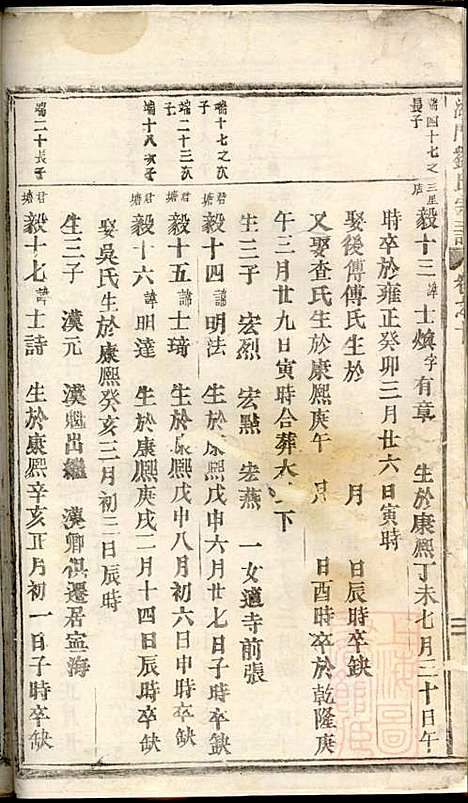 端四十七之
長子
三星
店
毅十三諱士煥字有章 生於康熙丁未七月二十日午
時卒於雍正癸卯三月廿六日寅時
娶後傅傅氏生於 月 日辰時卒缺
又娶查氏生於康熙庚午 月 日酉時卒於乾隆庚
午三月廿九日寅時合葬本 下
生三子 宏烈 宏點 宏燕 一女適寺前張
端十七之次
子
君
塘
毅十四諱明法 生於康熙戊申六月廿七日子時卒缺
端二十三次
子
君
塘
毅十五諱士琦 生於康熙戊申八月初六日申時卒缺
端十八次子
君
塘
毅十六諱明達 生於康熙庚戌二月十四日辰時卒缺
娶吳氏生於康熙癸亥三月初三日辰時
生三子 漢元 漢魁出繼 漢卿俱遷居寧海
端二十長子
君
塘
毅十七諱士詩 生於康熙辛亥正月初一日子時卒缺